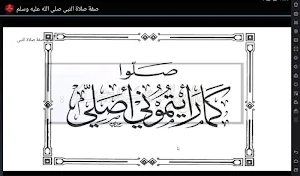 صفة صلاة النبي صلى الله عليه وسلم
صفة صلاة النبي
صلوا
كما رأيتموني أصلي